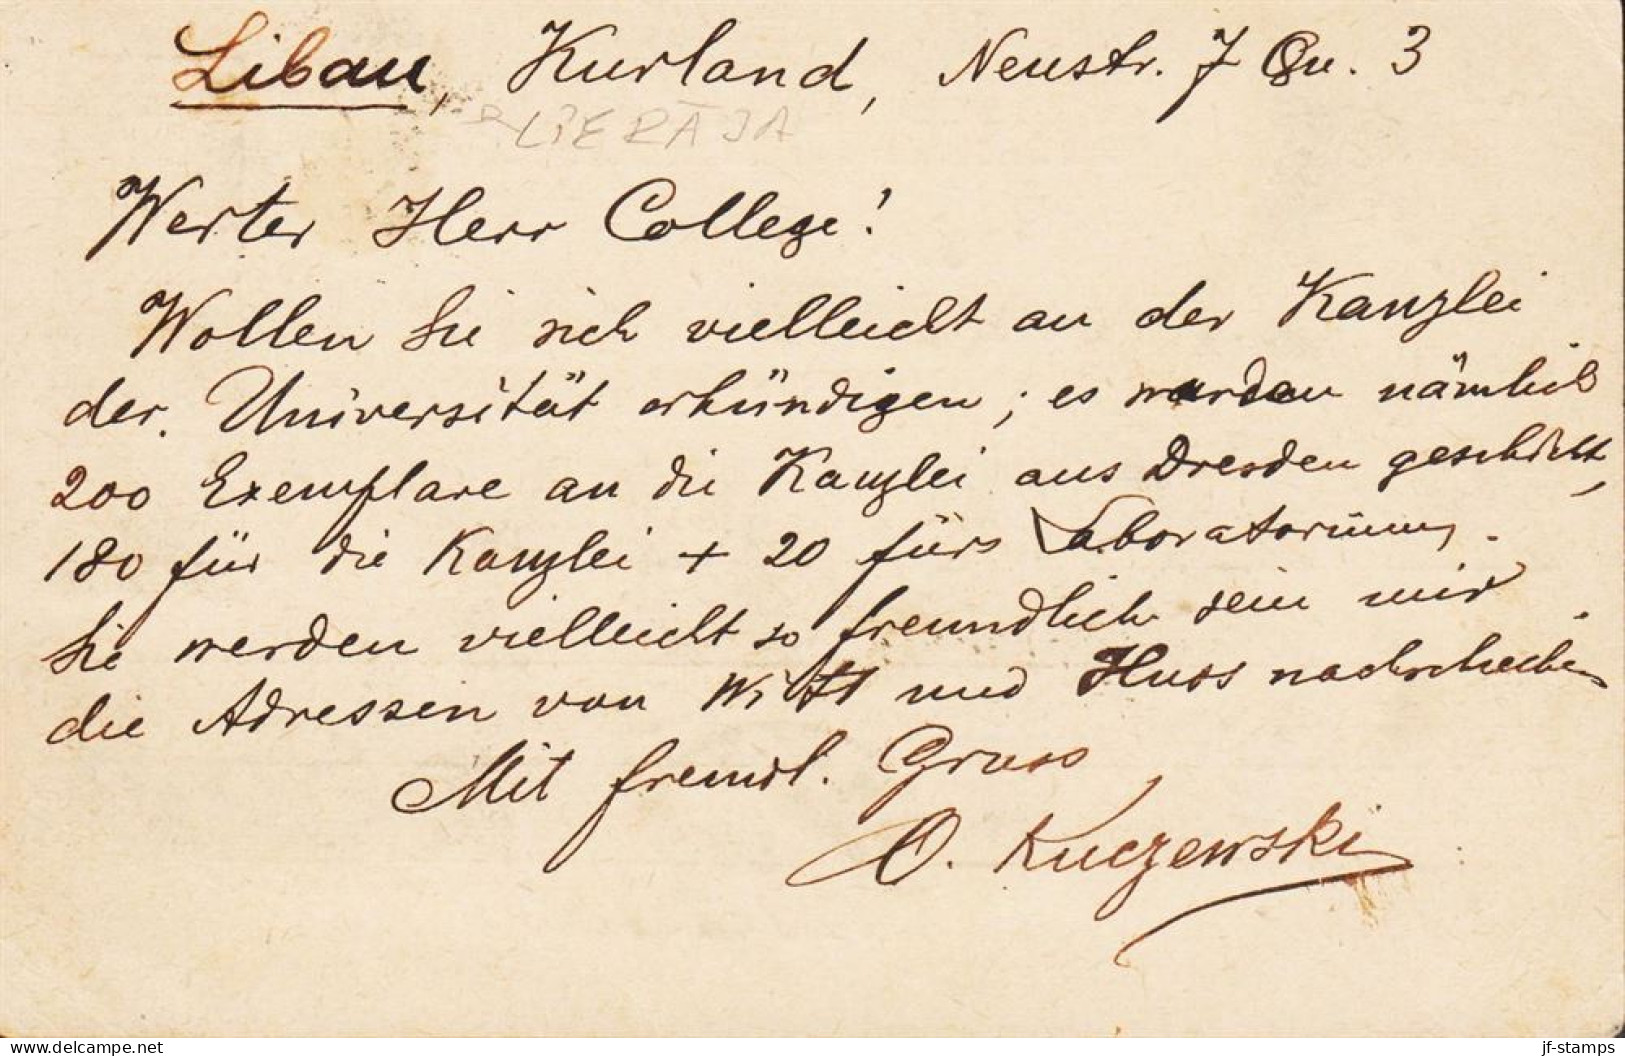 Libau, Kurland, Neustr. 7 Qu. 3
LIEPĀJA
Werter Herr College!
Wollen Sie sich vielleicht an der Kanzlei
der Universität erkündigen; es wurden nämlich
200 Exemplare an die Kanzlei aus Dresden geschickt,
180 für die Kanzlei + 20 fürs Laboratorium.
Sie werden vielleicht so freundlich sein mir
die Adressen von Witt und Huss nachschicken
Mit freundl. Gruss
O. Kuczewski
delcampe.net
jf-stamps